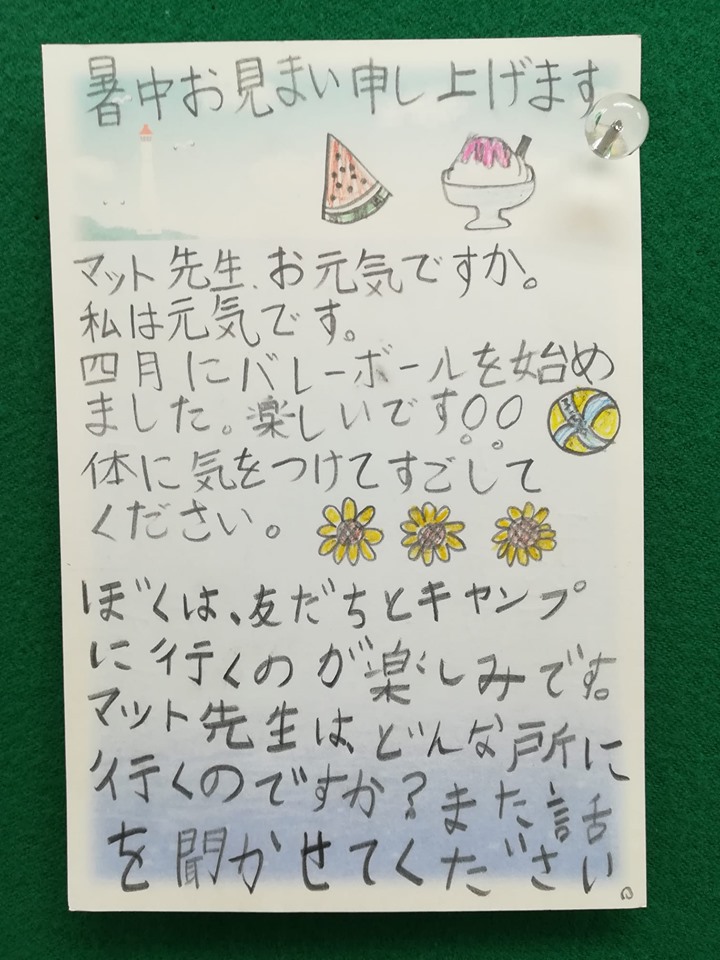 暑中お見まい申し上げます
マット先生、お元気ですか。
私は元気です。
四月にバレーボールを始め
ました。楽しいです
体に気をつけてすごして
ください。
ぼくは、友だちとキャンプ
に行くのが楽しみです。
マット先生は、どんな所に
行くのですか?また話
を聞かせてください